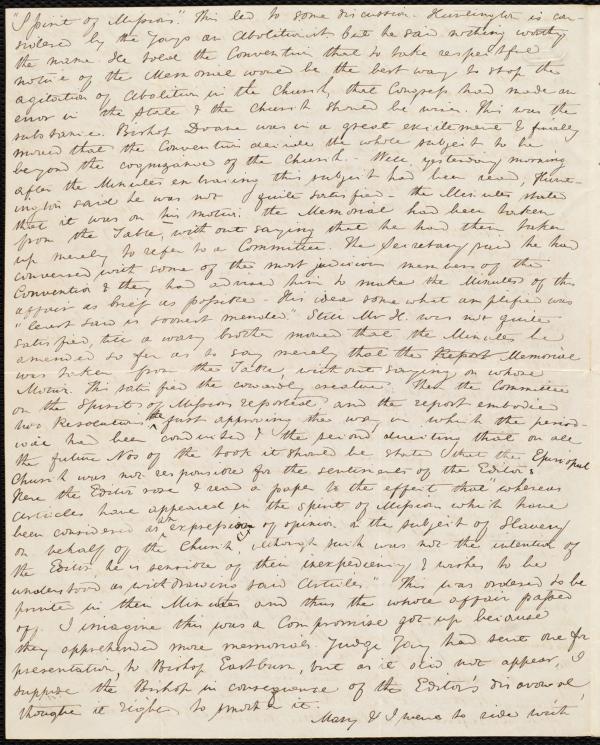 "Spirit of Missions." This led to some discussion. Huntington is con-
sidered by the Jays an Abolitionist but he said nothing worthy
the name. He told the Convention that to take respectful
notice of the Memorial would be the best way to stop the
agitation of Abolition in the Church, that Congress had made an
error in the State & the Church should be wise. This was the
substance. Bishop Doane was in a great excitement & finally
moved that the Convention decide the whole subject to be
beyond the cognizance of the Church. Well, yesterday morning
after the Minutes embracing this subject had been read, Hunt-
ington said he was not quite satisfied - the Minutes stated
that it was on his motion the Memorial had been taken
from the Table, without saying that he had then taken
up merely to refer to a Committee. The Secretary said he had
conversed with some of the most judicious members of the
Convention & they had advised him to make the Minutes of this
affair as brief as possible - His idea some what amplified was
"least said is soonest mended." Still Mr H. was not quite
satisfied, till a wary brother moved that the Minutes be
amended so far as to say merely that the Report Memorial
was taken from the Table, without saying on whose
Motion. This satisfied the cowardly creature. Then the Committee
on the Spirit of Missions reported and the report embodied
two Resolutions the first approving the way in which the period-
ical had been conducted & the second directing that on all
the future Nos of the book it should be stated that the Episcopal
Church was not responsible for the sentiments of the Editors
Here the Editor rose & read a paper to the effect that "whereas
Articles have appeared in the Spirit of Missions which have
been considered as an expression of opinion on the subject of Slavery
on behalf of the Church, although such was not the intention of
the Editor he is sensible of their inexpediency & wishes to be
understood as withdrawing said Articles." This was ordered to be
printed in their Minutes and thus the whole affair passed
off. I imagine this was a Compromise got up because
they apprehended more memorials. Judge Jay had sent one for
presentation, to Bishop Eastburn, but as it did not appear, I
suppose the Bishop in consequence of the Editor's disavowal,
thought it right to smother it.
Mary & I were to ride with